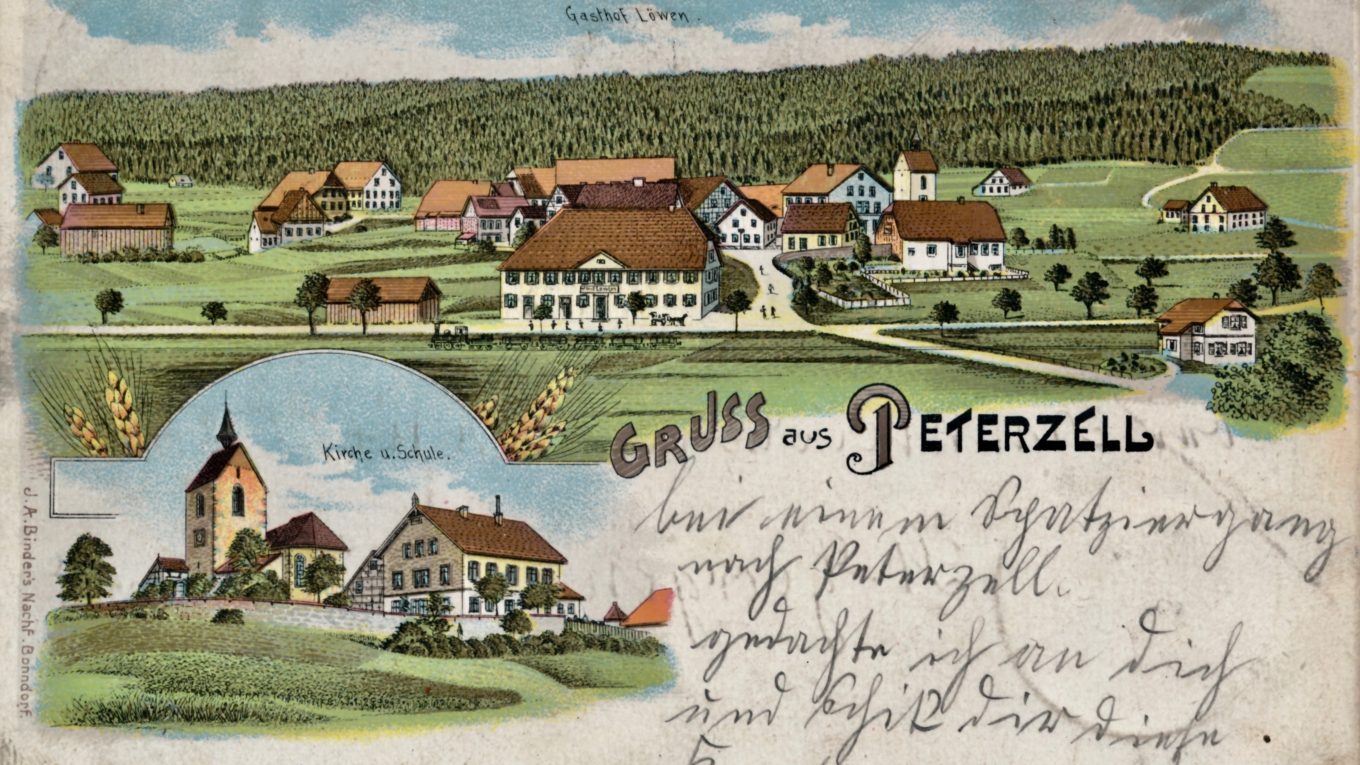 Gasthof Löwen.
Kirche u. Schule.
GRUSS aus PETERZELL
bei einem Spatziergang
nach Peterzell.
gedachte ich an dich
und schik dir diese
J. A. Binder's Nachf. Bonndorf.